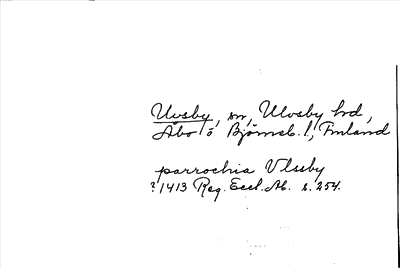 Ulvsby, sn, Ulvsby hrd,
Åbo o Björneb. l, Finland
parrochia Vlssby
? 1413 Reg. Eccl. Ab. s. 254.